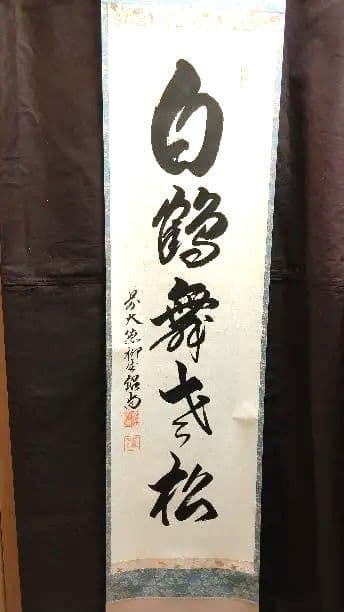 白鶴舞老松
前大徳柳生紹尚